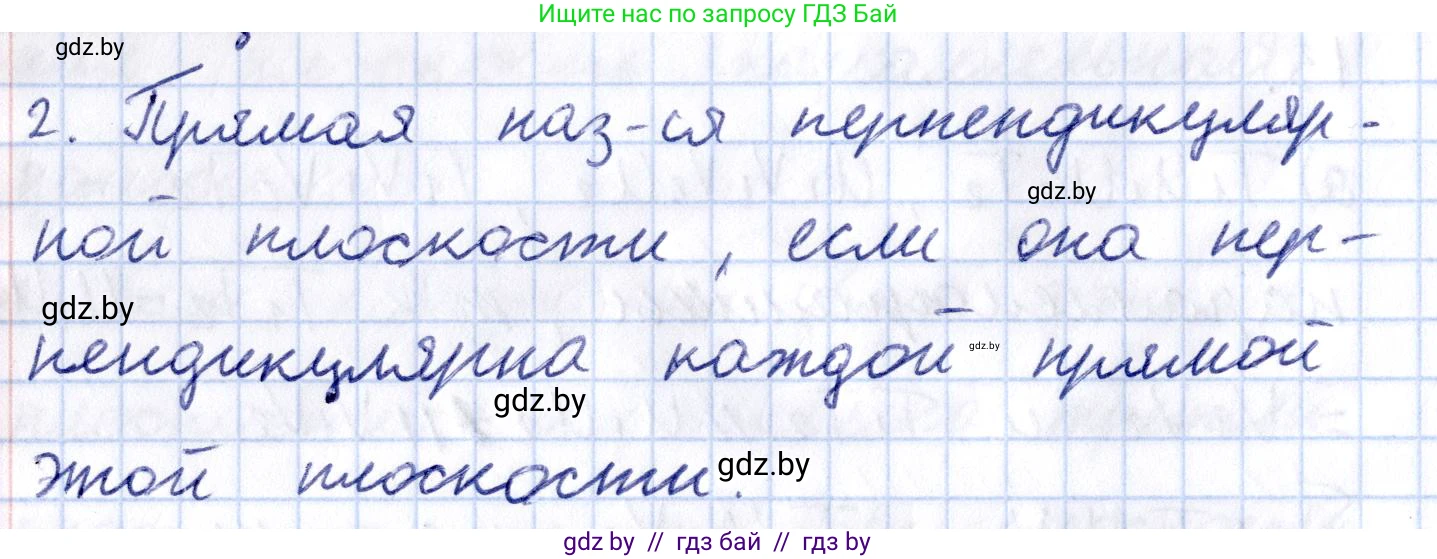 Ищите нас по запросу ГДЗ Бай
gdz.by
2. Прямая наз-ся перпендикуляр-
gdz.by
ной плоскости, если она пер-
gdz.by
пендикулярна каждой прямой
gdz.by
gdz.by
этой плоскости.
gdz.by
gdz by // гдз бай // гдз by